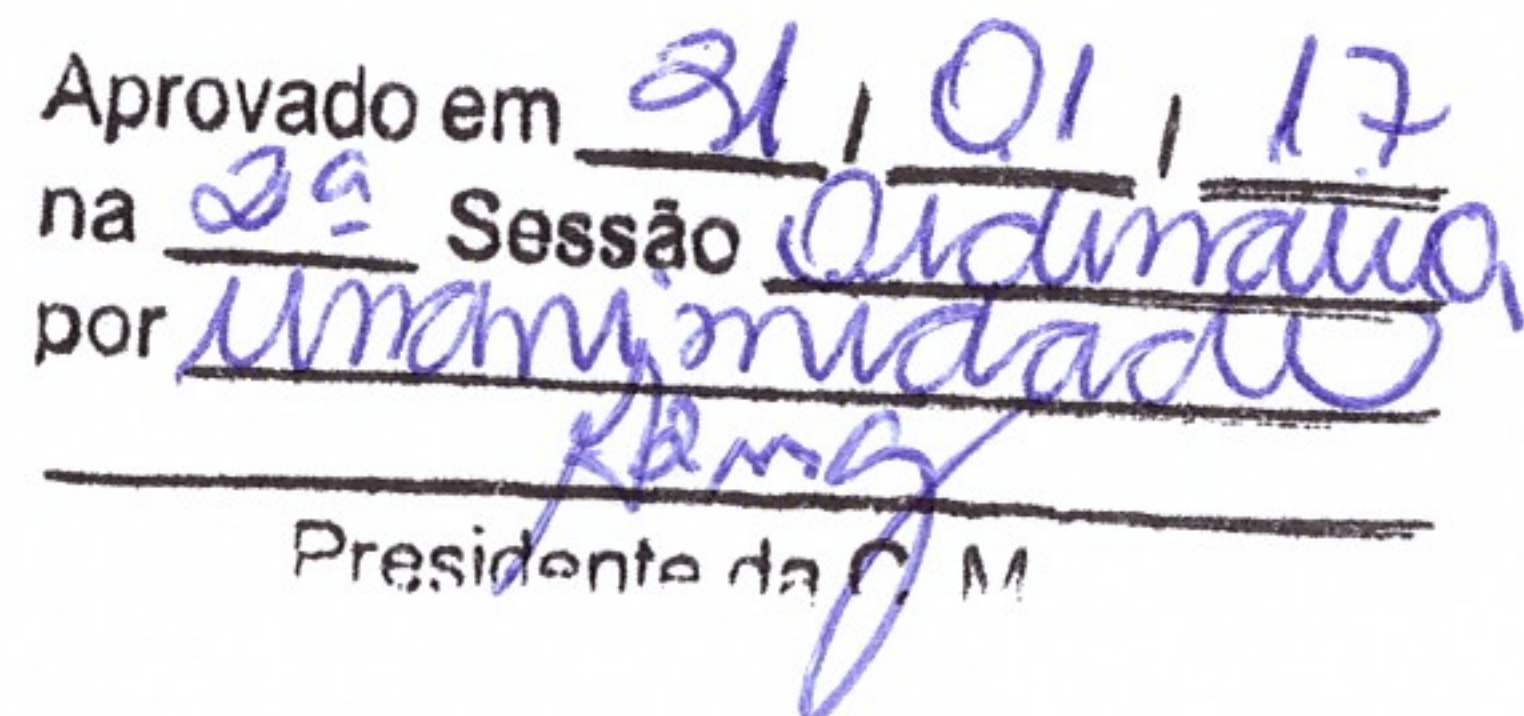 Aprovado em 31/01/17
na 2ª Sessão Ordinária
por unanimidade
Presidente da C. M